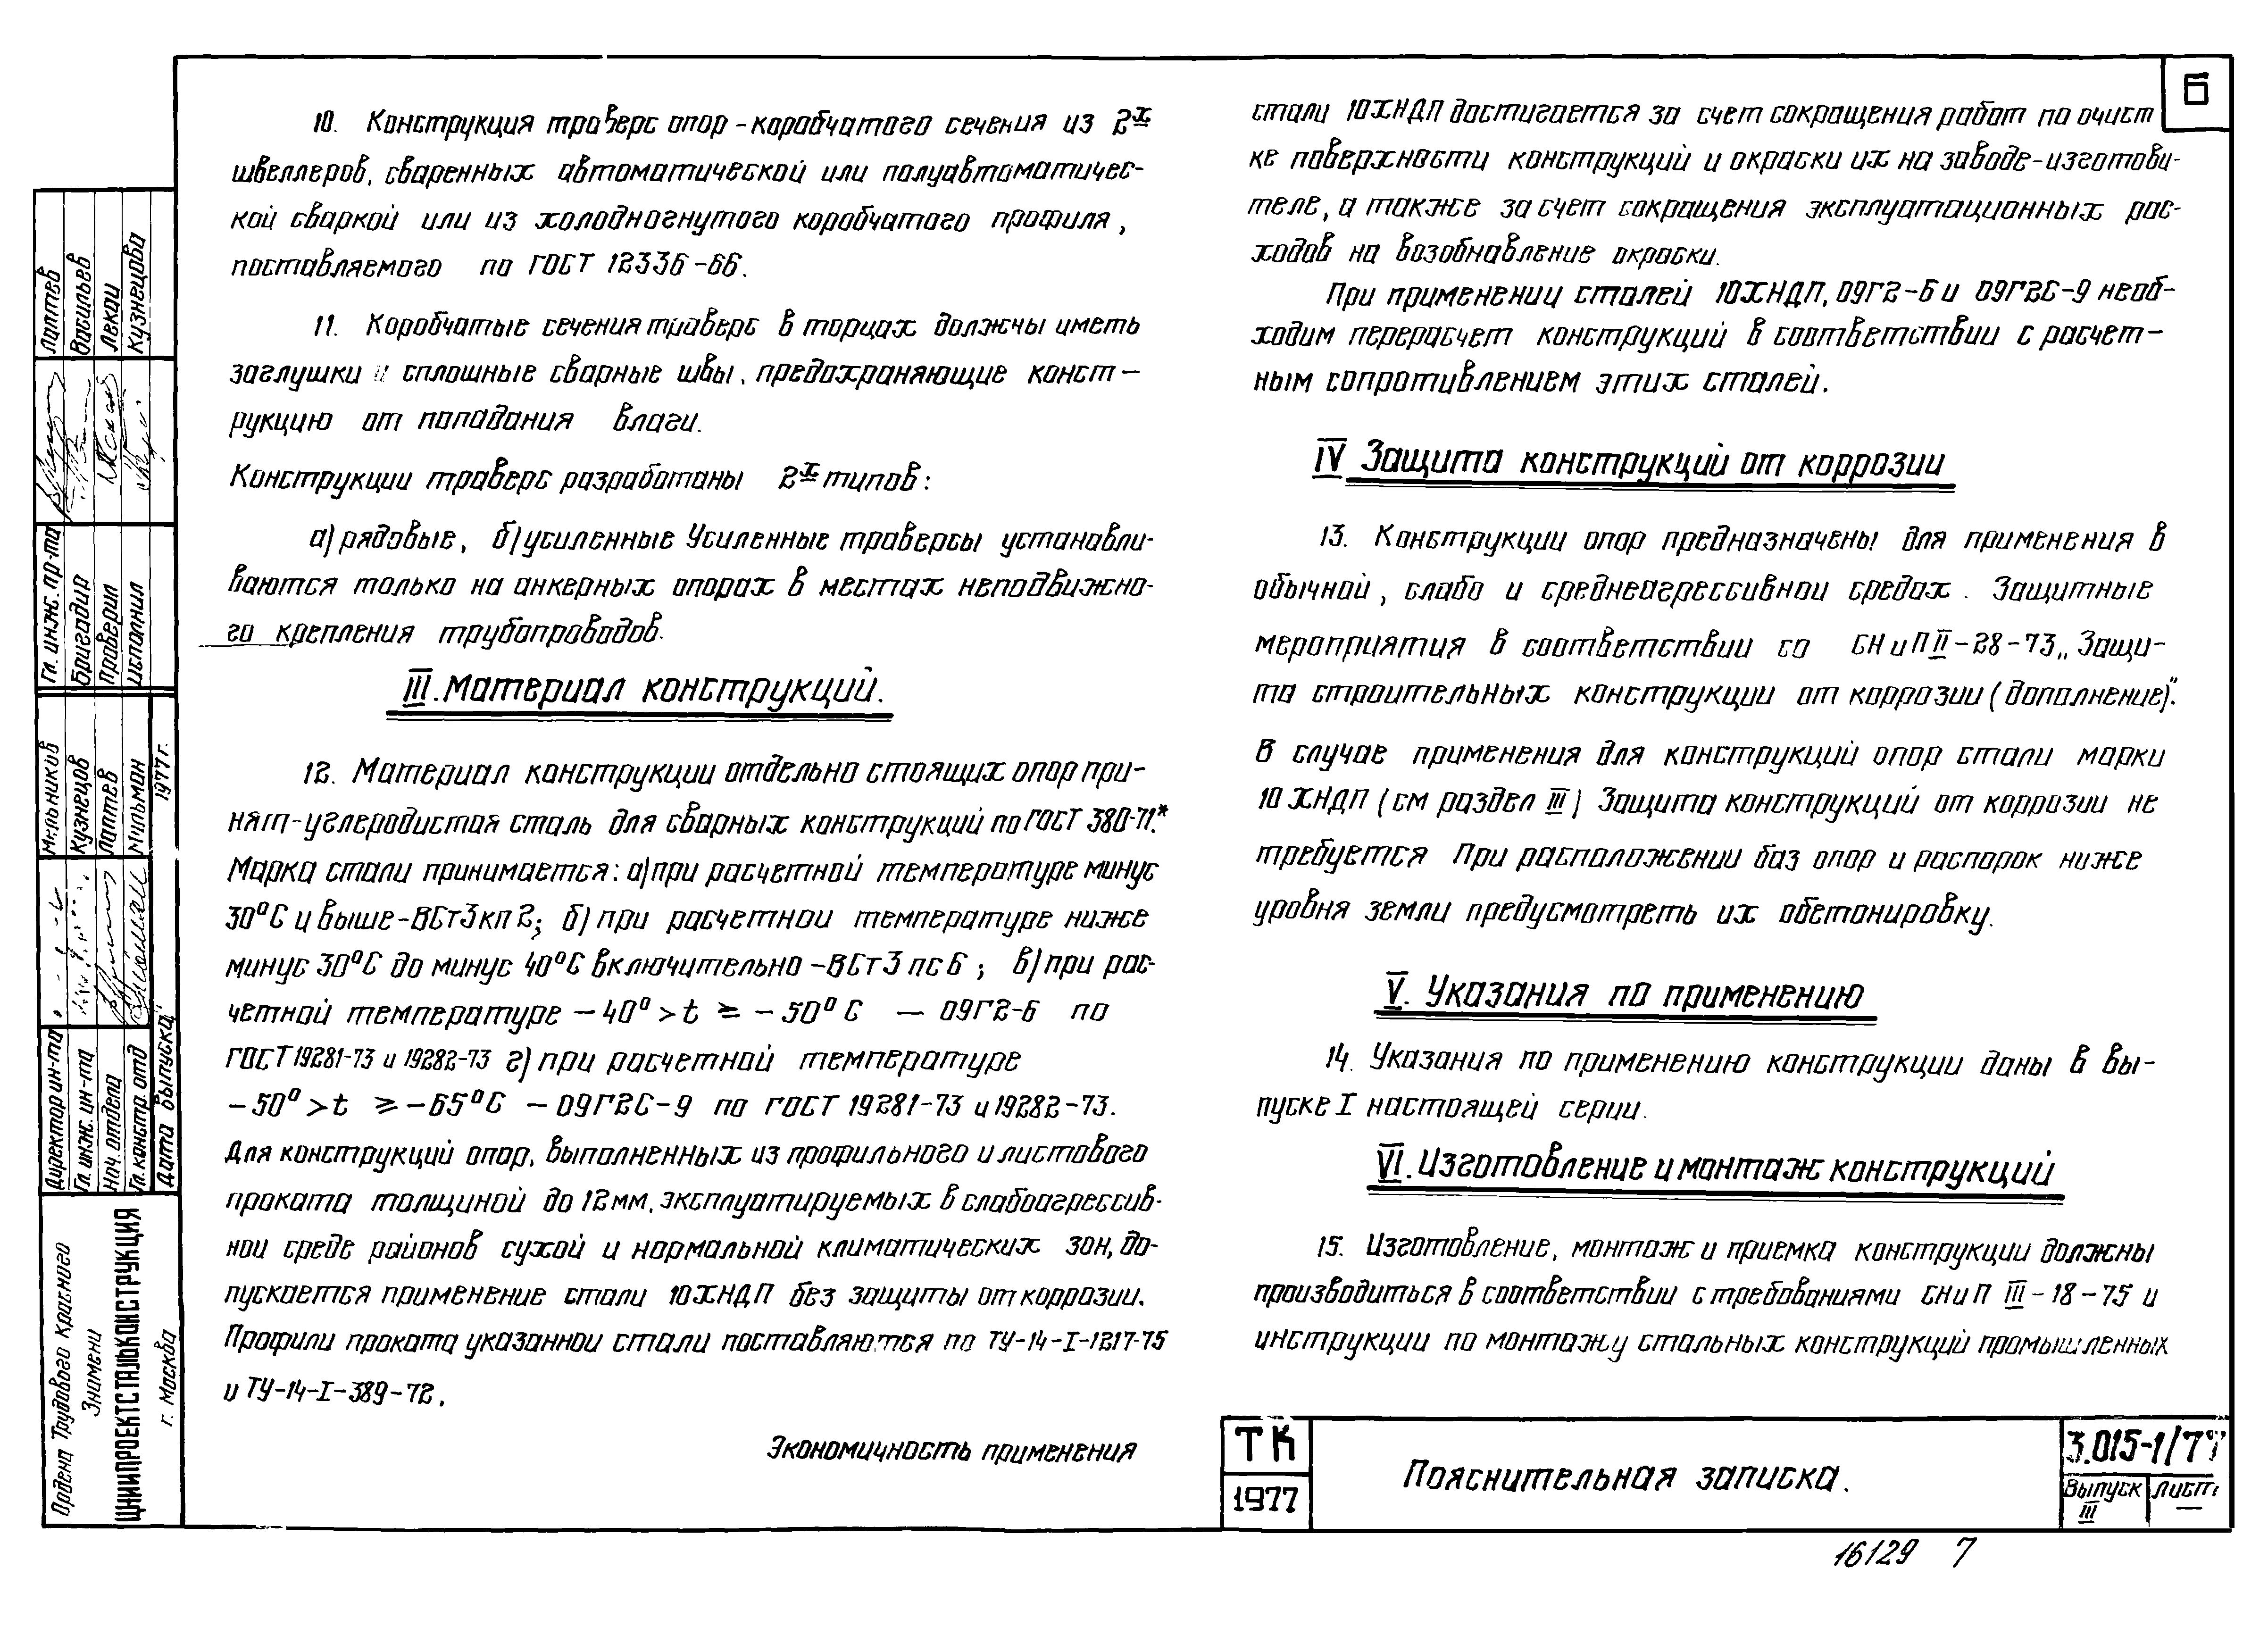 6
10. Конструкция траверс опор - коробчатого сечения из 2х
швеллеров, сваренных автоматической или полуавтоматичес-
кой сваркой или из холодногнутого коробчатого профиля,
поставляемого по ГОСТ 12336-66.
11. Коробчатые сечения траверс в торцах должны иметь
заглушки и сплошные сварные швы, предохраняющие конст-
рукцию от попадания влаги.
Конструкции траверс разработаны 2х типов:
а) рядовые, б) усиленные Усиленные траверсы устанавли-
ваются только на анкерных опорах в местах неподвижно-
го крепления трубопроводов.
III. Материал конструкций.
12. Материал конструкции отдельно стоящих опор при-
нят-углеродистая сталь для сварных конструкций по ГОСТ 380-71*.
Марка стали принимается: а) при расчетной температуре минус
30°С и выше-ВСт3кп2; б) при расчетнои температуре ниже
минус 30°С до минус 40°С включительно-ВСт3пс6; в) при рас-
четной температуре -40°>t ≥ -50°С — 09Г2-6 по
ГОСТ 19281-73 и 19282-73 г) при расчетной температуре
-50°>t ≥-65°С -09Г2С-9 по ГОСТ 19281-73 и 19282-73.
Для конструкций опор, выполненных из профильного и листового
проката толщиной до 12мм, эксплуатируемых в слабоагрессив-
нои среде районов сухой и нормальной климатических зон, до-
пускается применение стали 10ХНДП без защиты от коррозии.
Профили проката указаннои стали поставляются по ТУ-14-I-1217-75
и ТУ-14-I-389-72.
Экономичность применения
стали 10ХНДП достигается за счет сокращения работ по очист
ке поверхности конструкций и окраски их на заводе-изготови-
теле, а также за счет сокращения эксплуатационных рас-
ходов на возобнавление окраски.
При применении сталей 10ХНДП, 09Г2-6 и 09Г2С-9 необ-
ходим перерасчет конструкций в соответствии с расчет-
ным сопротивлением этих сталей.
IV Защита конструкций от коррозии
13. Конструкции опор предназначены для применения в
обычной, слабо и среднеагрессивнои средах. Защитные
мероприятия в соответствии со СНиП II-28-73 „Защи-
та строительных конструкции от коррозии (дополнение)".
В случае применения для конструкций опор стали марки
10ХНДП (см раздел III) Защита конструкций от коррозии не
требуется При расположении баз опор и распорок ниже
уровня земли предусмотреть их обетонировку.
V. Указания по применению
14. Указания по применению конструкции даны в вы-
пуске I настоящей серии.
VI. Изготовление и монтаж конструкций
15. Изготовление, монтаж и приемка конструкции должны
производиться в соответствии с требованиями СНиП III-18-75 и
инструкции по монтажу стальных конструкций промышленных
ТК
1977
Пояснительная записка.
3.015-1/77
Выпуск
III
Лист
—
16129 7
Лаптев
Васильев
Лекаи
Кузнецова
Гл. инж. пр-та
Бригадир
Проверил
Исполнил
Мельников
Кузнецов
Лаптев
Мильман
1977г.
Директор ин-та
Гл. инж. ин-та
Нач. отдела
Гл. констр. отд
Дата выпуска
Ордена Трудового Красного
Знамени
ЦНИИПРОЕКТСТАЛЬКОНСТРУКЦИЯ
г. Москва